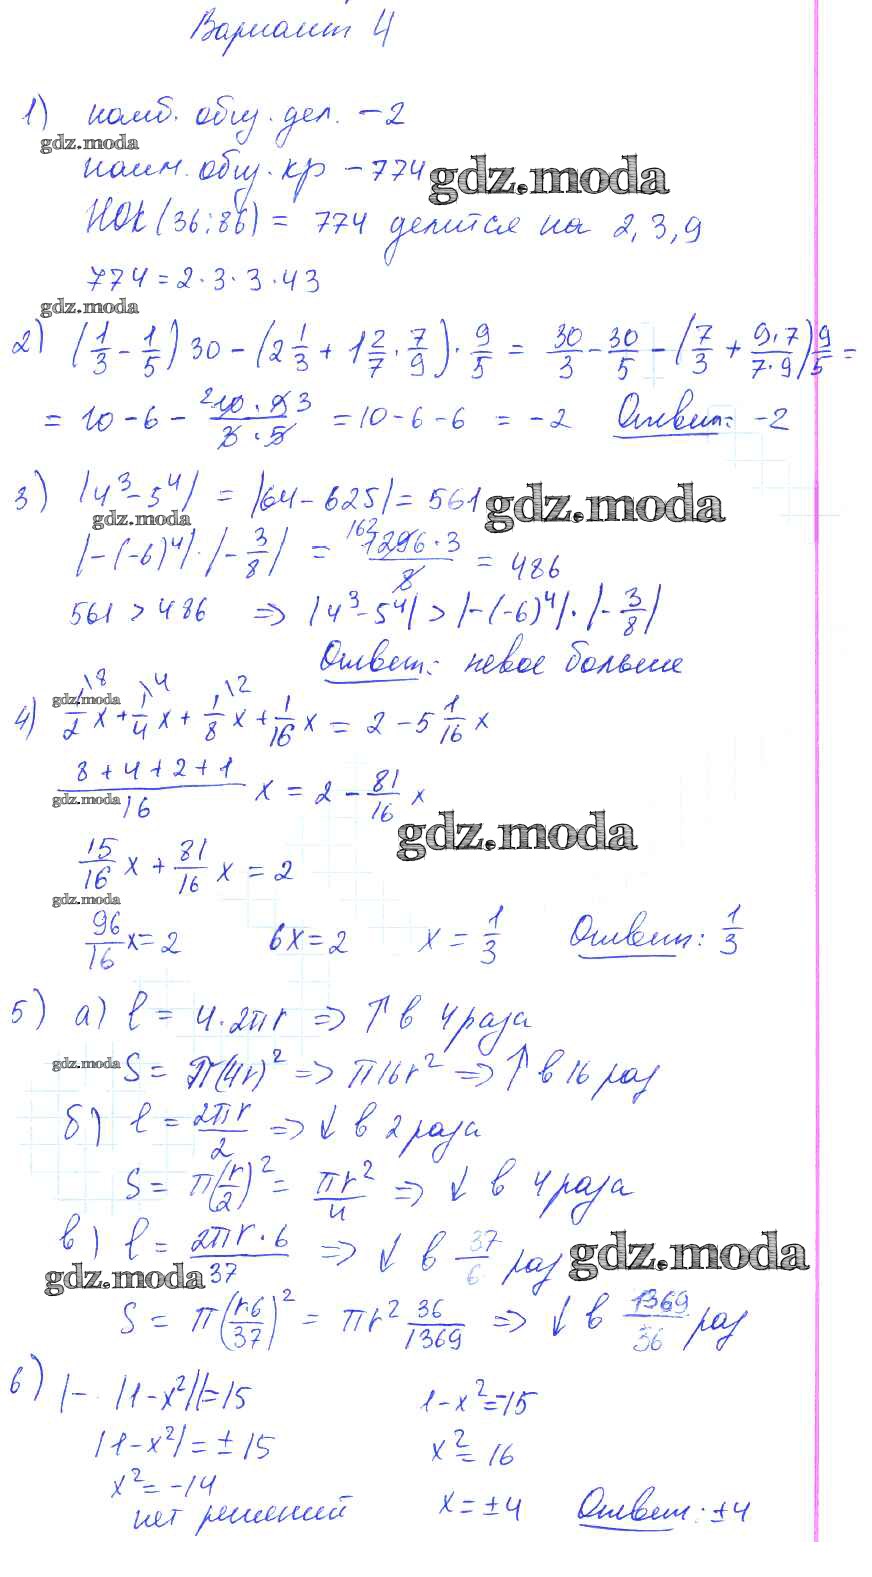 Вариант 4
1) наиб. общ. дел. – 2
gdz.moda
наим. общ. кр – 774
gdz.moda
НОК (36; 86) = 774 делится на 2, 3, 9
774 = 2 · 3 · 3 · 43
gdz.moda
2) (1/3 – 1/5) 30 – (2 1/3 + 1 2/7 · 7/9) · 9/5 = 30/3 – 30/5 – (7/3 + 9·7/7·9) 9/5 =
= 10 – 6 – 2 10 · 9 3 / 3 · 5 = 10 – 6 – 6 = –2 Ответ: –2
3) |4³ – 5⁴| = |64 – 625| = 561
gdz.moda
gdz.moda
|–(–6)⁴| · |–3/8| = 162 1296 · 3 / 8 = 486
561 > 486 ⇒ |4³ – 5⁴| > |–(–6)⁴| · |–3/8|
Ответ: левое больше
gdz.moda
4) 1\8/2 x + 1\4/4 x + 1\2/8 x + 1/16 x = 2 – 5 1/16 x
8 + 4 + 2 + 1 / 16 x = 2 – 81/16 x
gdz.moda
gdz.moda
15/16 x + 81/16 x = 2
gdz.moda
96/16 x = 2 6x = 2 x = 1/3 Ответ: 1/3
5) а) l = 4 · 2πr ⇒ ↑ в 4 раза
gdz.moda
S = π(4r)² ⇒ π16r² ⇒ ↑ в 16 раз
б) l = 2πr/2 ⇒ ↓ в 2 раза
S = π(r/2)² = πr²/4 ⇒ ↓ в 4 раза
в) l = 2πr · 6/37 ⇒ ↓ в 37/6 раз
gdz.moda
gdz.moda
S = π(r·6/37)² = πr² 36/1369 ⇒ ↓ в 1369/36 раз
6) |– |1 – x²|| = 15 1 – x² = –15
|1 – x²| = ± 15 x² = 16
x² = –14
нет решений x = ±4 Ответ: ±4